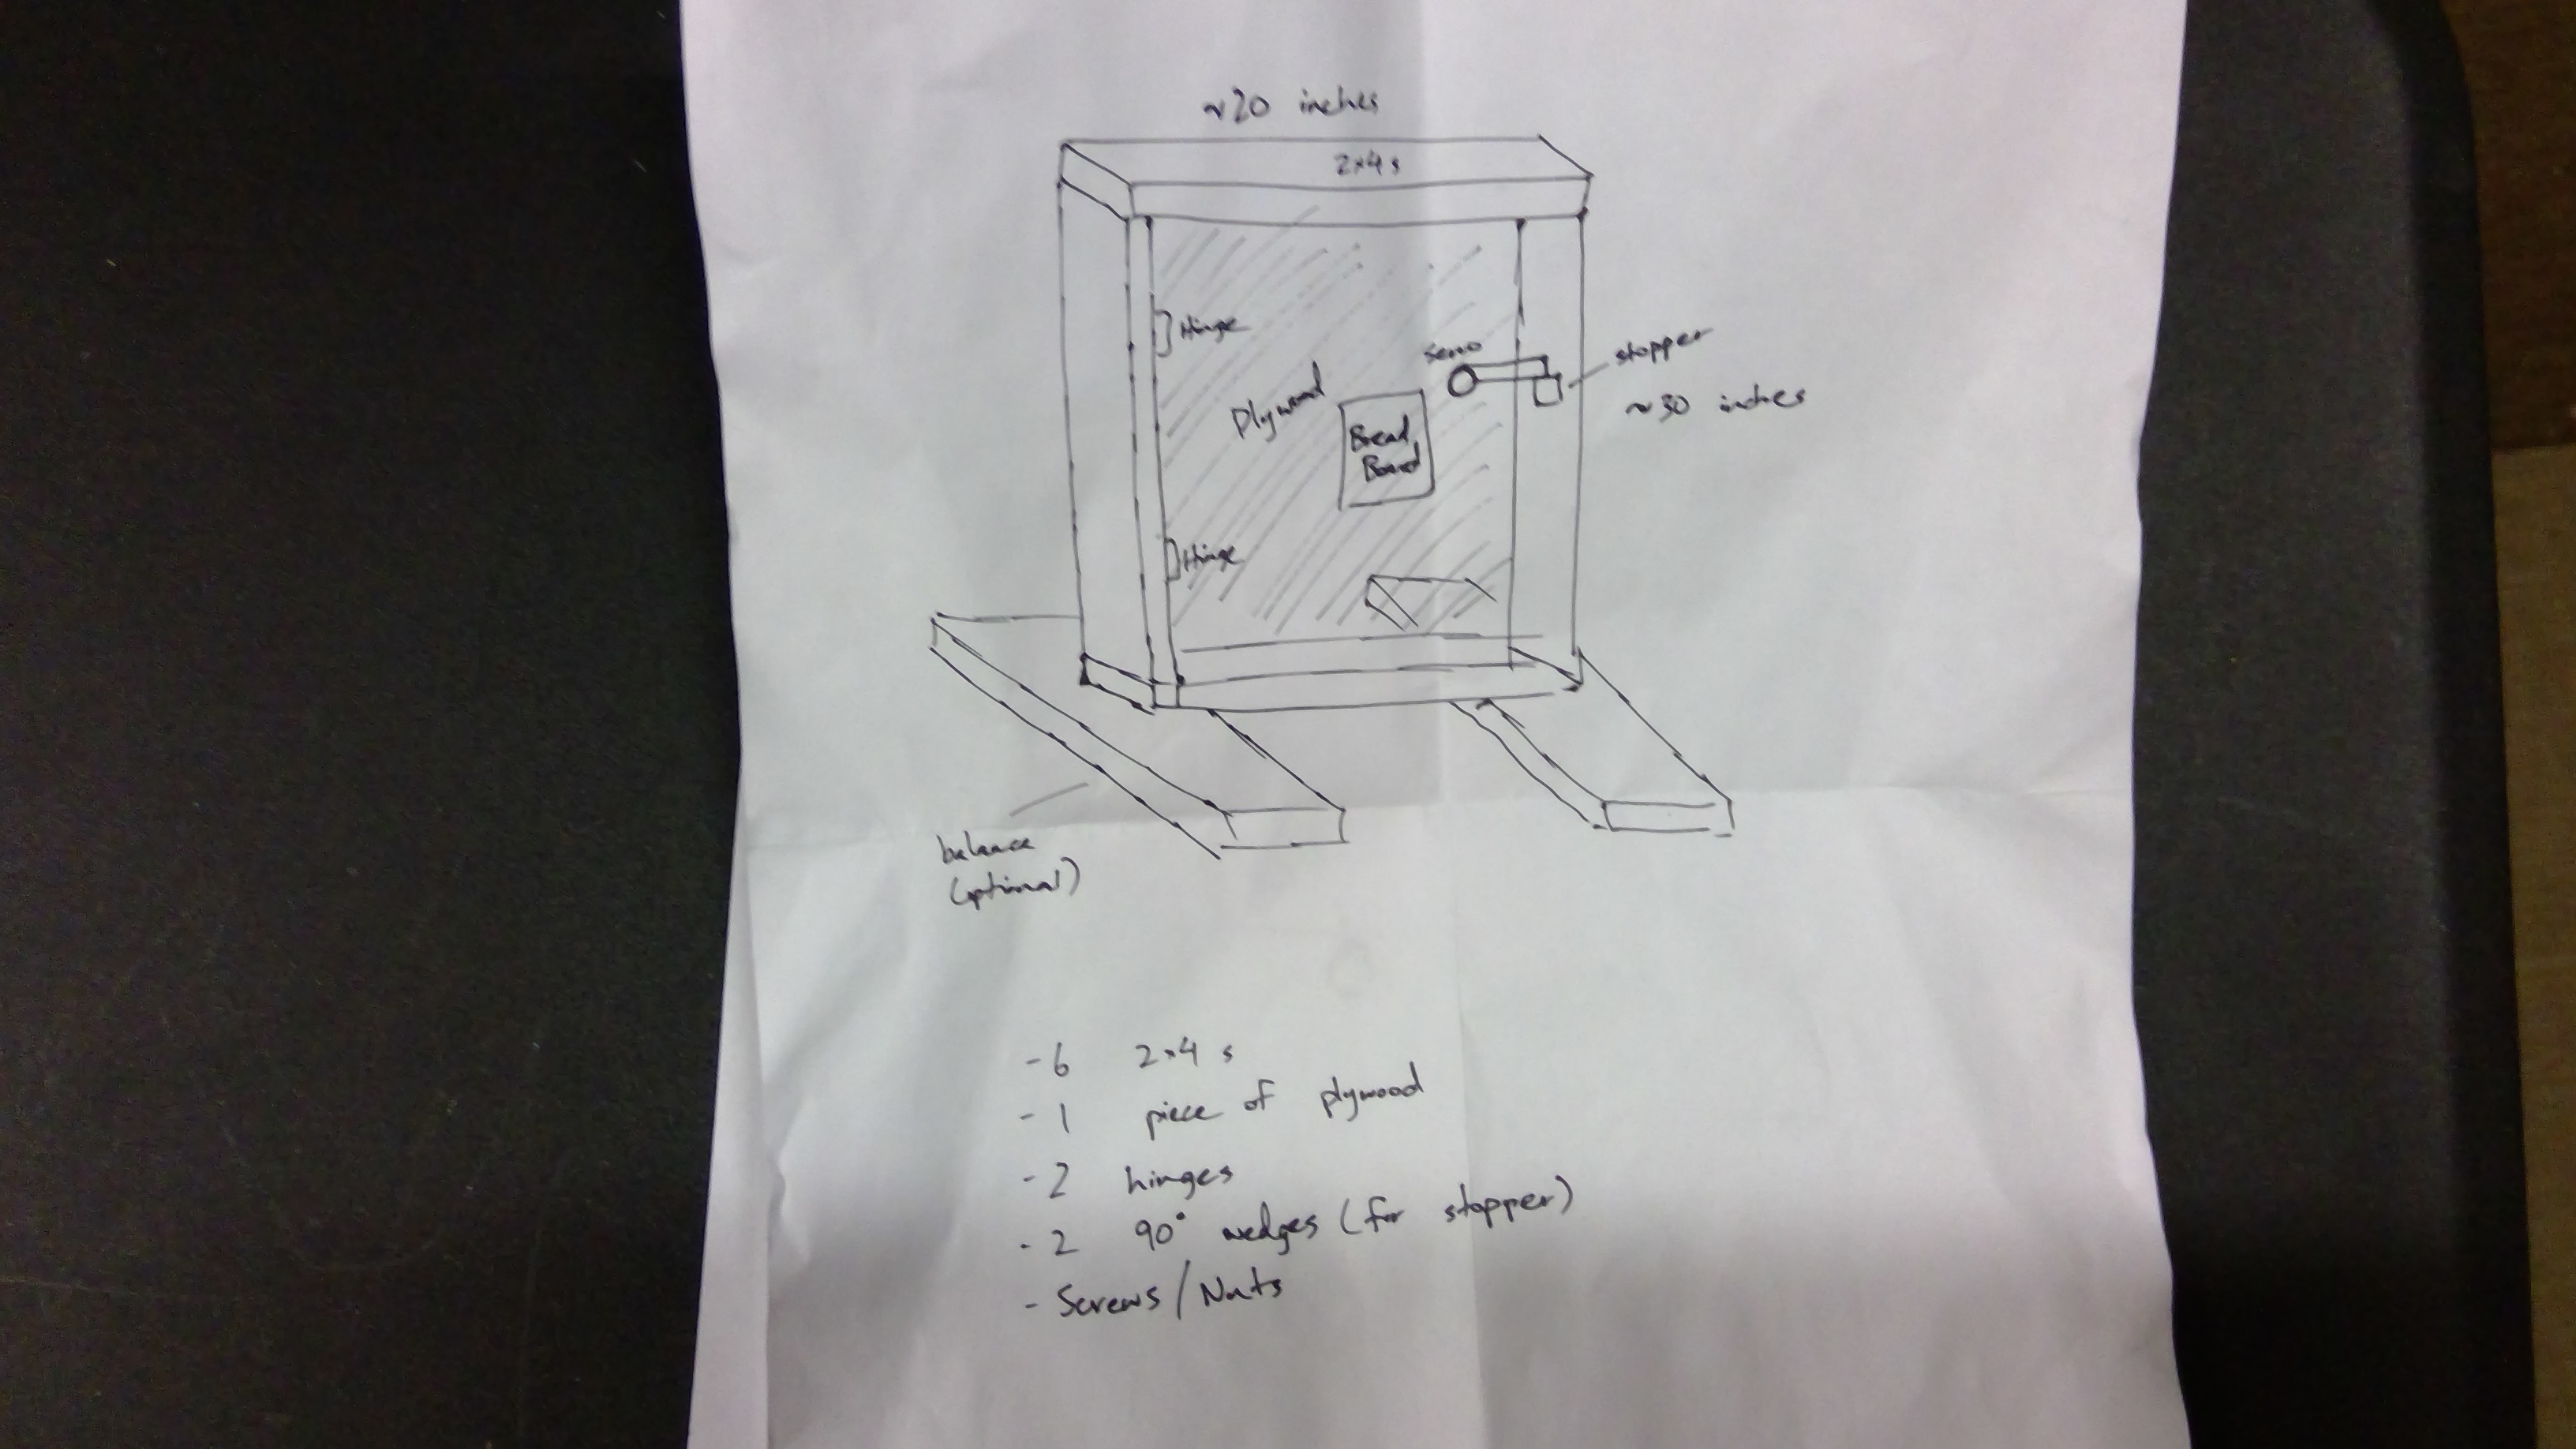 ~20 inches
2x4s
Hinge
servo
stopper
Plywood
~30 inches
Bread
Board
Hinge
balance
(optional)
-6 2x4s
-1 piece of plywood
-2 hinges
-2 90° wedges (for stopper)
- Screws/Nuts